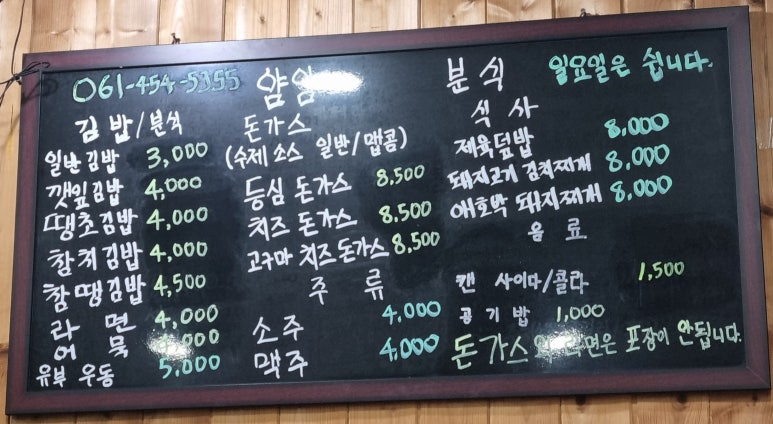 061-454-5355 얌얌 분식 일요일은 쉽니다.
김밥/분식
일반김밥 3,000
깻잎김밥 4,000
땡초김밥 4,000
참치김밥 4,000
참땡김밥 4,500
라면 4,000
어묵 4,000
유부 우동 5,000
돈가스
(수제 소스 일반/맵콤)
등심 돈가스 8,500
치즈 돈가스 8,500
고구마 치즈 돈가스 8,500
주류
소주 4,000
맥주 4,000
식사
제육덮밥 8,000
돼지고기 김치찌개 8,000
애호박 돼지찌개 8,000
음료
캔 사이다/콜라 1,500
공기밥 1,000
돈가스와 라면은 포장이 안됩니다.